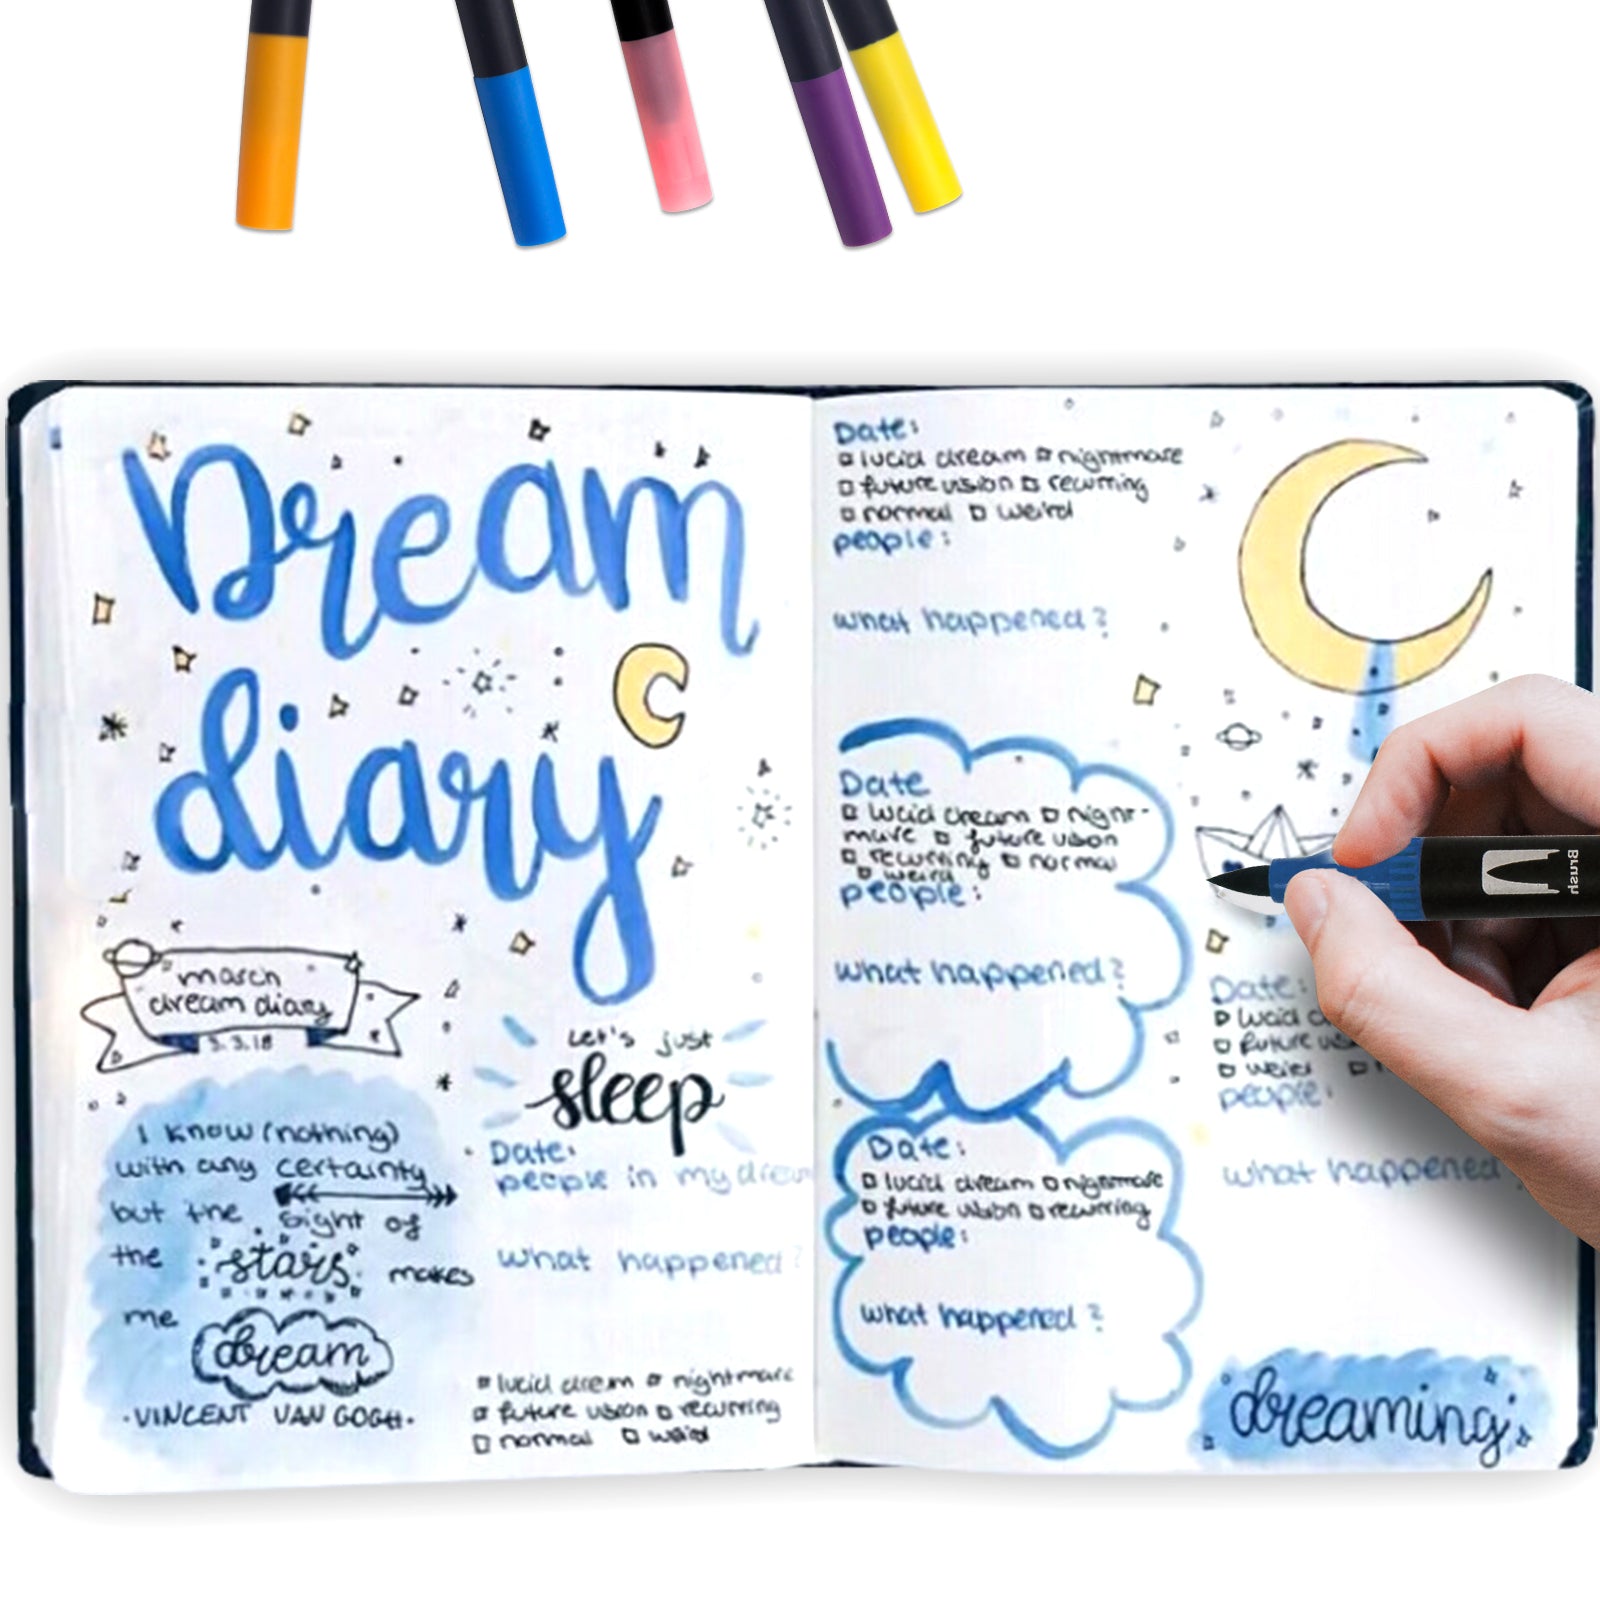 Dream
diary
march
dream diary
3.3.18
Let's just
sleep
I know (nothing)
with any certainty
but the sight of
the stars makes
me
dream
·VINCENT VAN GOGH·
Date:
people in my dream
what happened?
lucid dream nightmare
future vision recurring
normal weird
Date:
lucid dream nightmare
future vision recurring
normal weird
people:
what happened?
Date
lucid dream night-
mare future vision
recurring normal
weird
people:
what happened?
Date:
lucid dream nightmare
future vision recurring
people:
what happened?
Date:
lucid
future
weird
people:
what happened
dreaming
Brush